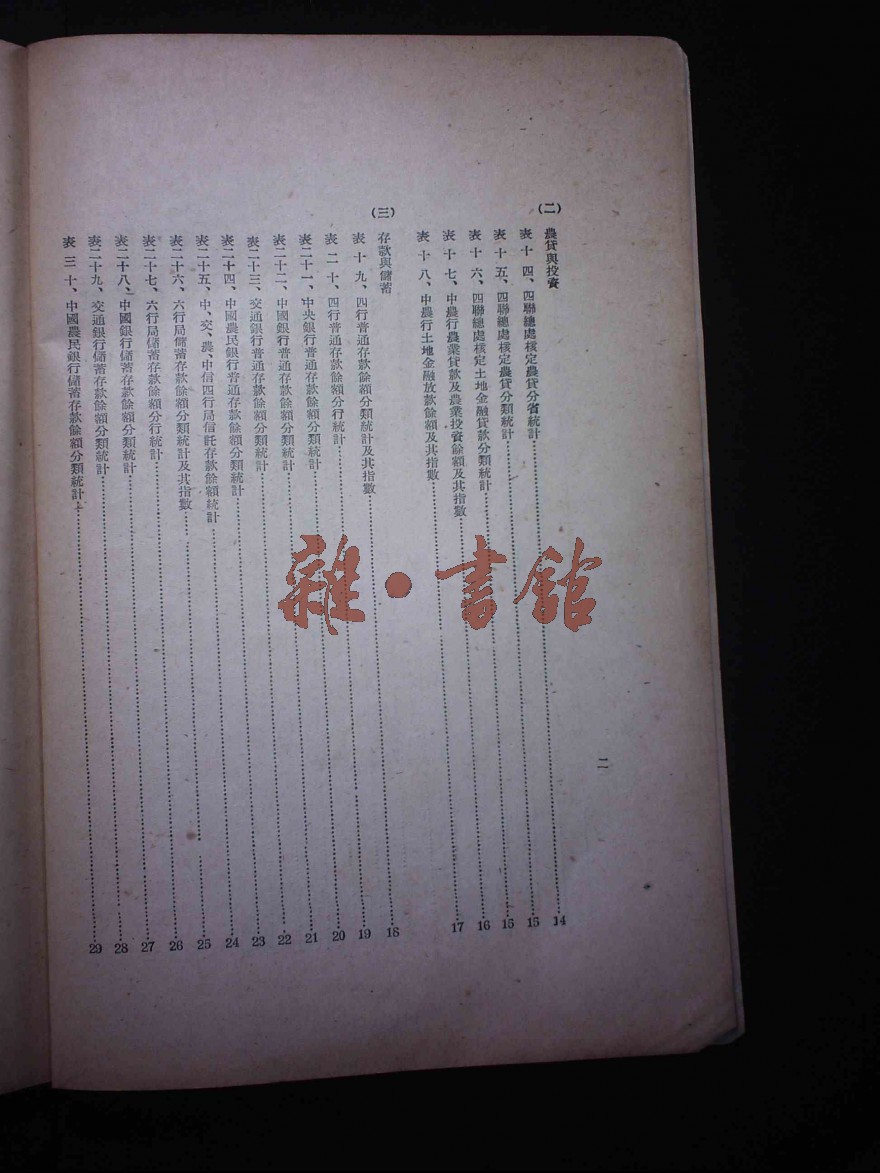 二
(二) 農貸與投資
表十四、四聯總處核定農貸分省統計……14
表十五、四聯總處核定農貸分類統計……15
表十六、四聯總處核定土地金融貸款分類統計……15
表十七、中農行農業貸款及農業投資餘額及其指數……16
表十八、中農行土地金融放款餘額及其指數……17
(三) 存款與儲蓄
表十九、四行普通存款餘額分類統計及其指數……18
表二十、四行普通存款餘額分行統計……19
表二十一、中央銀行普通存款餘額分類統計……20
表二十二、中國銀行普通存款餘額分類統計……21
表二十三、交通銀行普通存款餘額分類統計……22
表二十四、中國農民銀行普通存款餘額分類統計……23
表二十五、中、交、農、中信四行局信託存款餘額統計……24
表二十六、六行局儲蓄存款餘額分類統計及其指數……25
表二十七、六行局儲蓄存款餘額分行統計……26
表二十八、中國銀行儲蓄存款餘額分類統計……27
表二十九、交通銀行儲蓄存款餘額分類統計……28
表三十、中國農民銀行儲蓄存款餘額分類統計……29
雜·書館